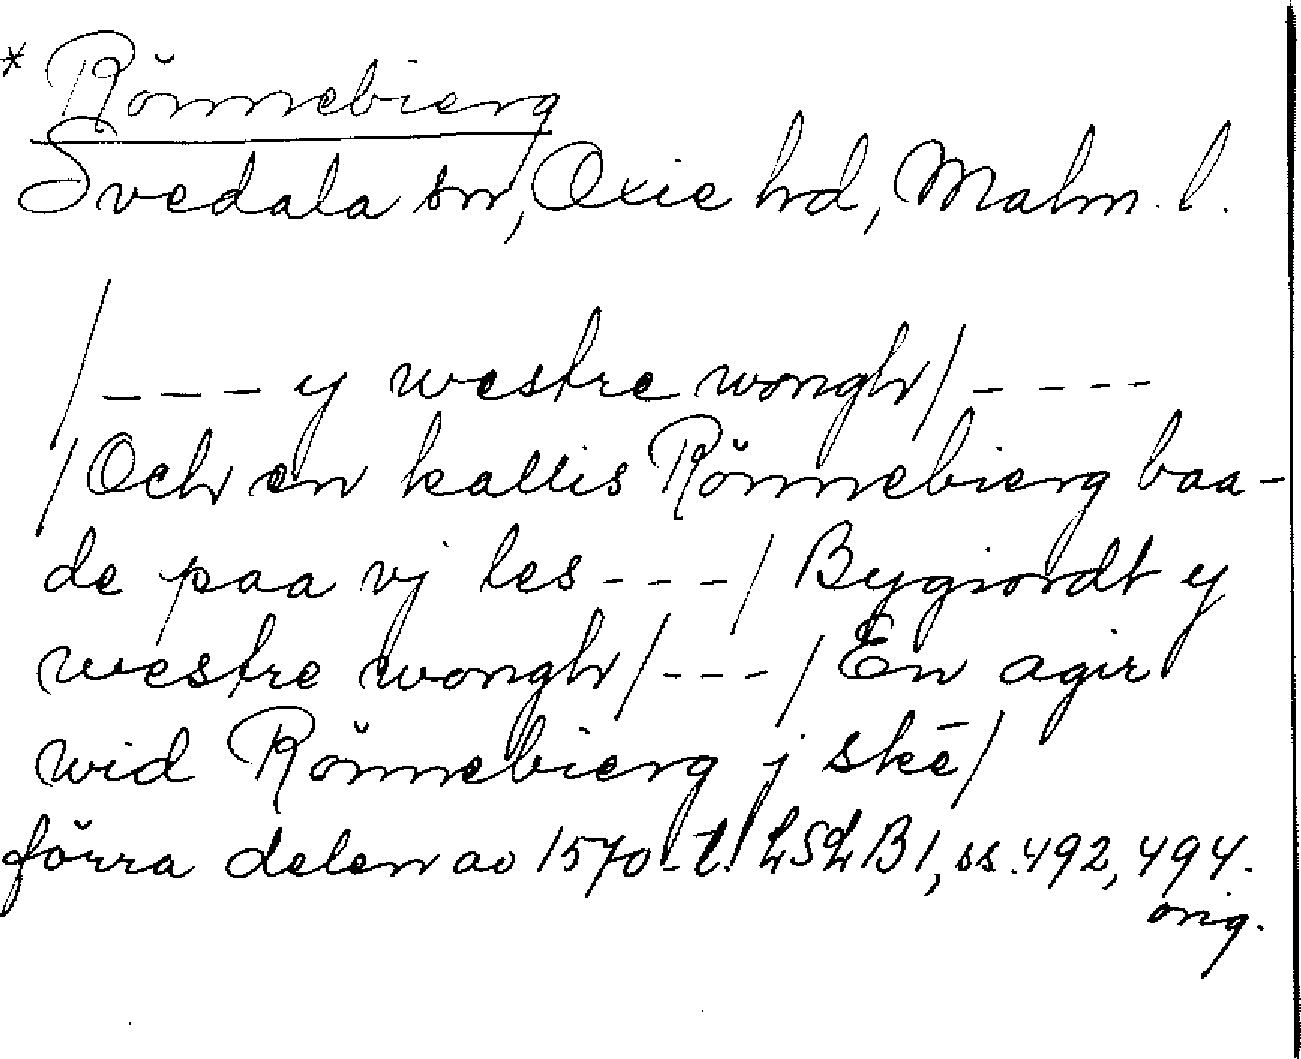 * Rönnebierg
Svedala sn, Oxie hd, Malm. l.
/ - - - y westre wongh / - - - -
/ Och en kallis Rönnebierg baa-
de paa vj les - - - / Bygiordt y
westre wongh / - - - / En agir
wid Rönnebierg j skē /
förra delen av 1570-t. LSLB 1, ss. 492, 494.
orig.